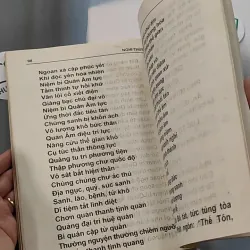 Ngoan xà cập phúc yết
Khí độc yên hỏa nhiên
Niệm bỉ Quán Âm lực
Tầm thinh tự hồi khứ
Vân lôi cổ xiết điện
Giáng bạc chú đại võ
Niệm bỉ Quán Âm lực
Ứng thời đắc tiêu tán
Chúng sanh bị khổn ách
Vô lượng khổ bức thân
Quán Âm diệu trí lực
Năng cứu thế gian khổ
Cụ túc thần thông lực
Quảng tu trí phương tiện
Thập phương chư quốc độ
Vô sát bất hiện thân
Chủng chủng chư ác thú
Địa ngục, quỷ, súc sanh
Sanh, lão, bệnh, tử khổ
Dĩ tiệm tất linh diệt
Chơn quán thanh tịnh quán
Quảng đại trí huệ quán
Bi quán cập từ quán
Thường nguyện thường chiêm ngưỡng
tức tùng tòa
ngôn: "Thế Tôn,